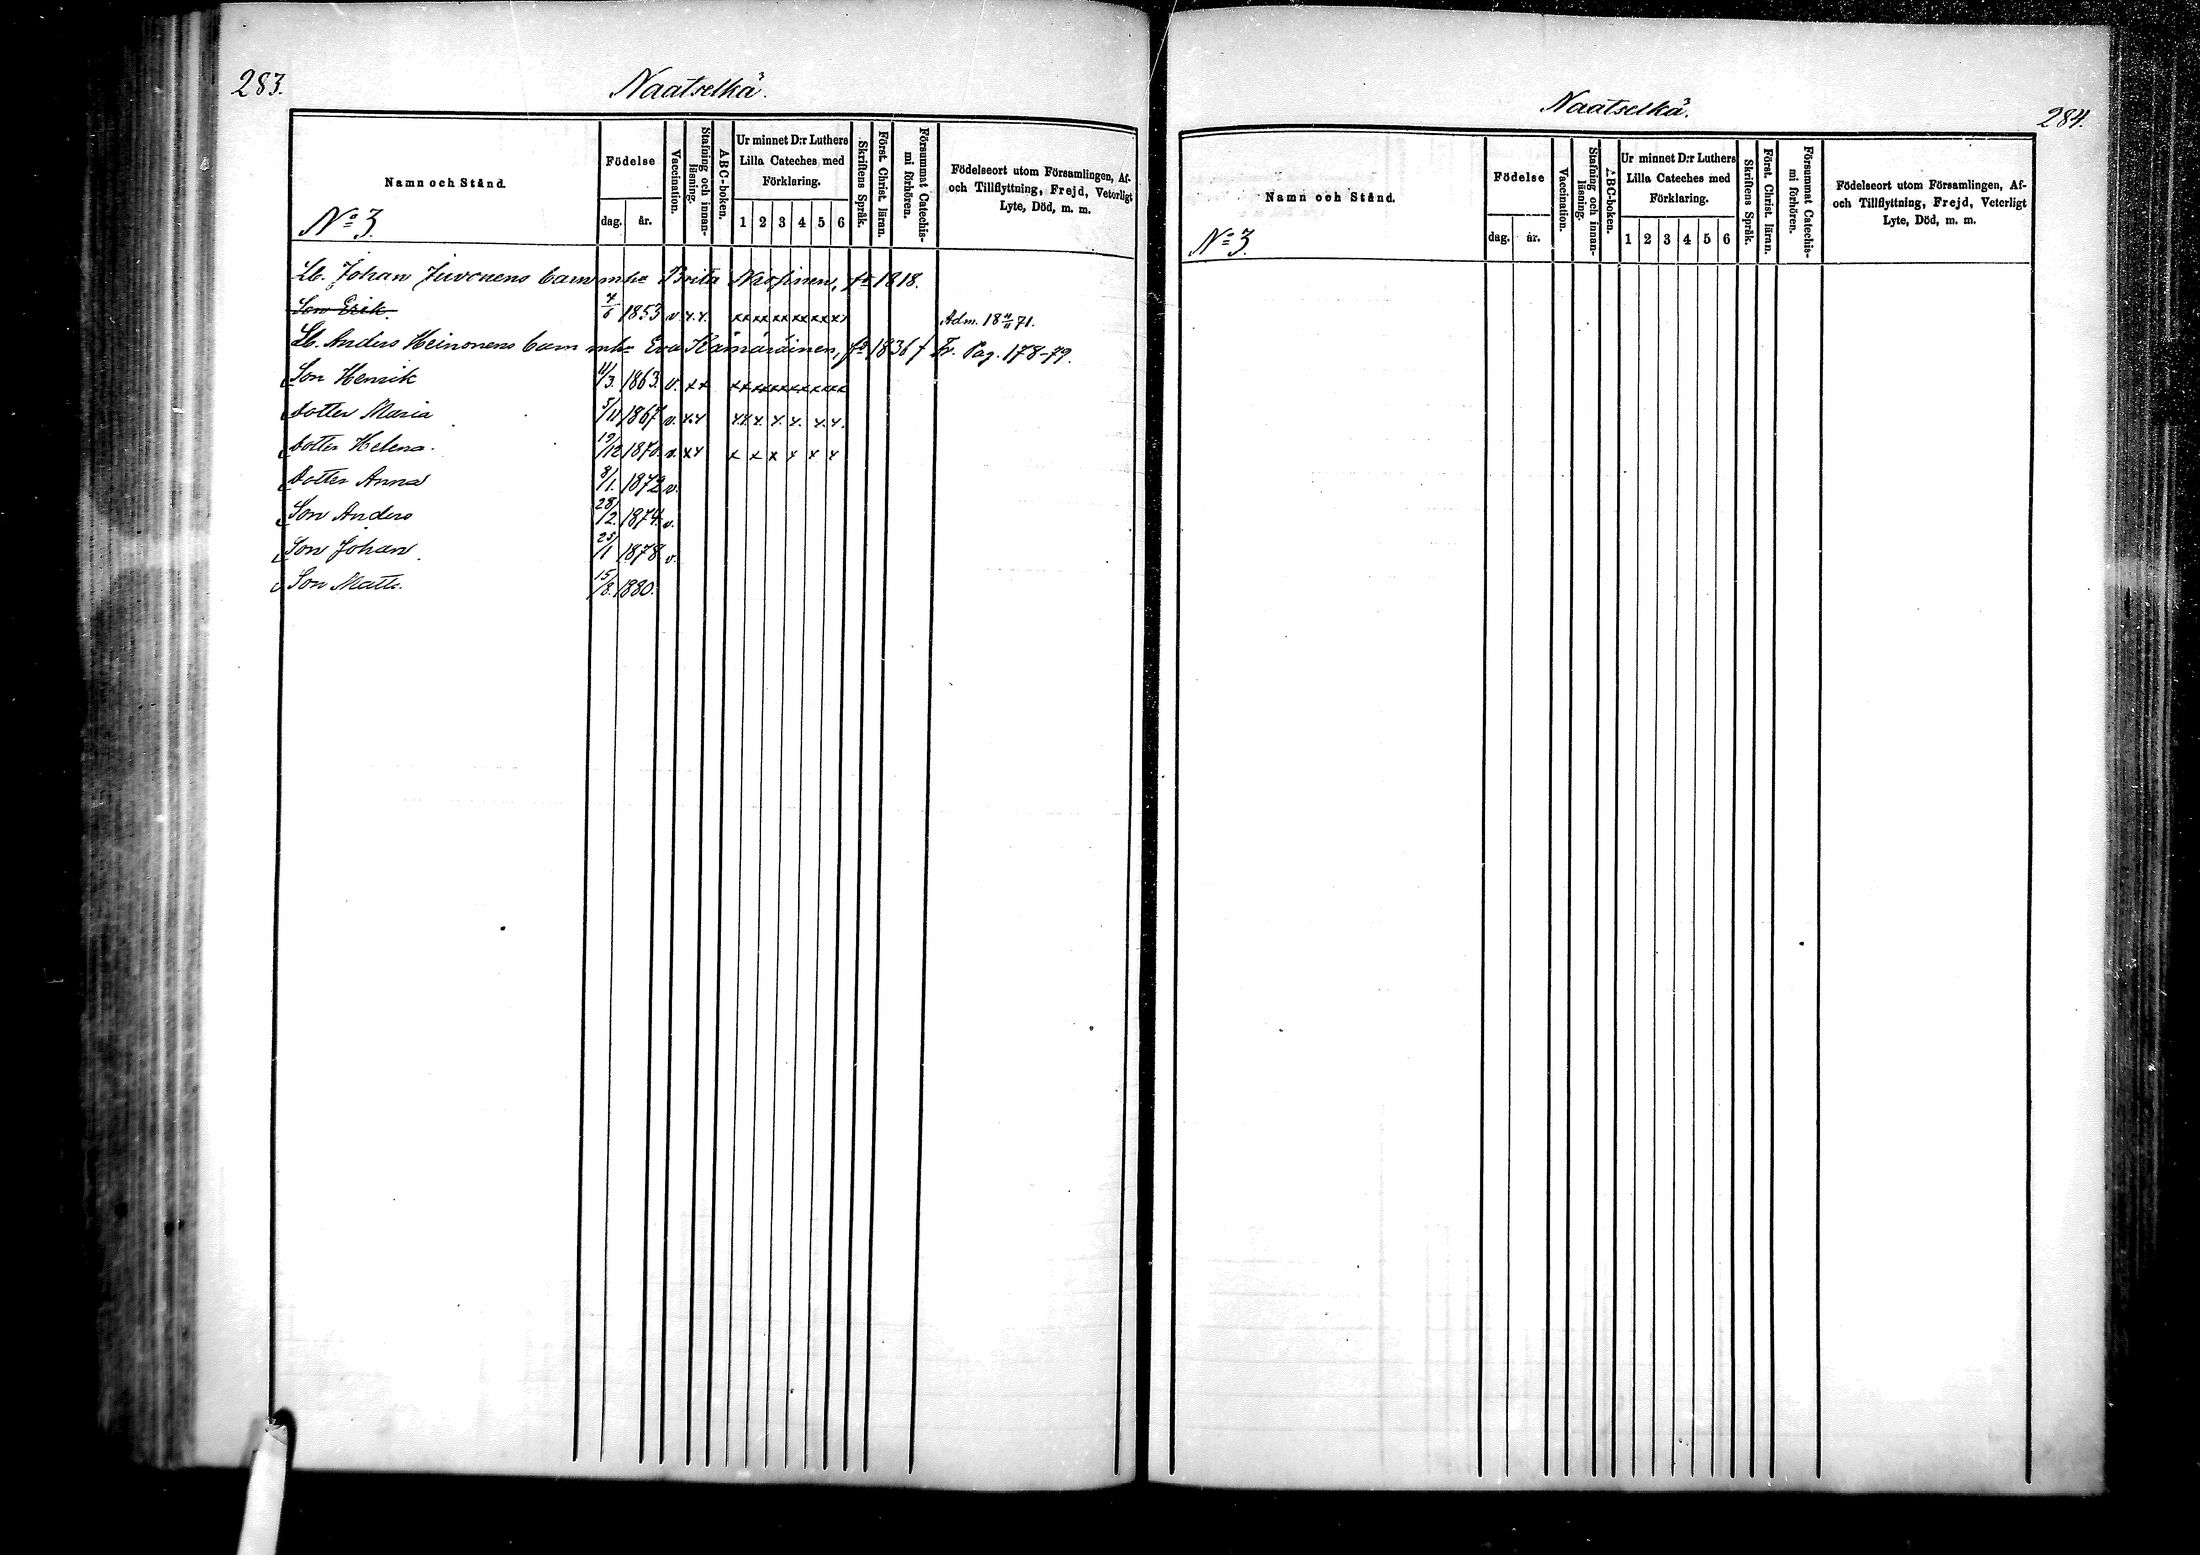 283.
Naatselkä.
Namn och Stånd.
Födelse
dag. år.
Vaccination.
Stafning och innan-läsning.
ABC-boken.
Ur minnet D:r Luthers
Lilla Cateches med
Förklaring.
1 2 3 4 5 6
Skriftens Språk.
Först. Christ. läran.
Försummat Catechis-mi förhören.
Födelseort utom Församlingen, Af-
och Tillflyttning, Frejd, Veterligt
Lyte, Död, m. m.
No 3.
Lb. Johan Juvonens barn m. h. Brita fd 1818.
Son Erik. 7/6 1853 v x.x. xx xx xx xx xx xx Adm. 18 71.
Lb. Anders Heinonens barn m. h. Eva Kämäräinen, fd 1836 + Tr. Pag. 178-79.
Son Henrik 11/3. 1863. v. x x xx xx xx xx xx xx
dotter Maria 5/11 1867 v. x.x x.x. x. x. x. x. x.
dotter Helena. 19/12 1870. v. x x x x x x x x
dotter Anna 8/1. 1872 v.
Son Anders 28/2. 1874. v.
Son Johan. 25/1 1878 v.
Son Matts. 15/8. 1880.
Naatselkä.
284.
Namn och Stånd.
Födelse
dag. år.
Vaccination.
Stafning och innan-läsning.
ABC-boken.
Ur minnet D:r Luthers
Lilla Cateches med
Förklaring.
1 2 3 4 5 6
Skriftens Språk.
Först. Christ. läran.
Försummat Catechis-mi förhören.
Födelseort utom Församlingen, Af-
och Tillflyttning, Frejd, Veterligt
Lyte, Död, m. m.
No 3.